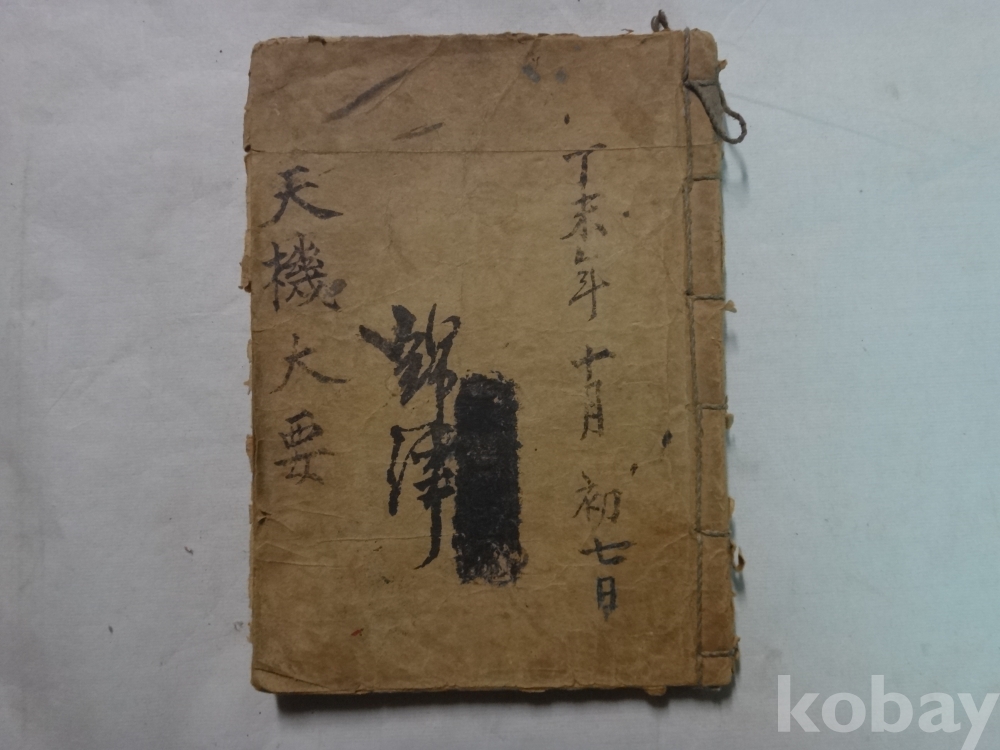 丁未年 十月 初七日
錦澤
天機大要
kobay